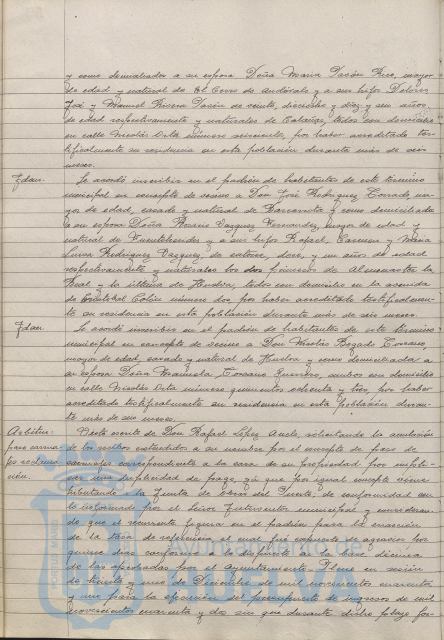 y como domiciliados a su esposa Doña Maria Pavón Rico, mayor
de edad y natural de El Cerro de Andévalo y a sus hijos Dolores
José y Manuel Rivera Pavón de veinte, dieciseis y diez y seis años
de edad respectivamente y naturales de Calañas, todos con domicilio
en calle Nicolás Orta número seiscientos, por haber acreditado tes-
tificalmente su residencia en esta población durante más de seis
meses.
Idem. Se acordó inscribir en el padrón de habitantes de este término
municipal en concepto de vecino a Don José Rodriguez Corrado, ma-
yor de edad, casado y natural de Barcarrota y como domiciliada
a su esposa Doña Rosario Vazquez Fernandez, mayor de edad y
natural de Fuenteheridos y a sus hijos Rafael, Carmen y Maria
Luisa Rodriguez Vazquez, de catorce, doce, y un años de edad
respectivamente y naturales los dos primeros de Almonaster la
Real y la última de Huelva, todos con domicilio en la avenida
de Cristobal Colón número dos, por haber acreditado testificalmen-
te su residencia en esta población durante más de seis meses.
Idem. Se acordó inscribir en el padrón de habitantes de este término
municipal en concepto de vecino a Don Nicolás Bogado Toscano,
mayor de edad, casado y natural de Huelva y como domiciliada a
su esposa Doña Manuela Toscano Guerrero, ambos con domicilio
en calle Nicolás Orta número quinientos ochenta y tres, por haber
acreditado testificalmente su residencia en esta población duran-
te más de seis meses.
Visto escrito de Don Rafael López solicitando la anulación
de los recibos extendidos a su nombre por el concepto de paso de
carruajes correspondiente a la casa de su propiedad por impli-
car una duplicidad de pago, ya que por igual concepto viene
tributando a la Junta de Obras del Puerto, de conformidad con
lo informado por el Señor Interventor municipal y consideran-
do que el recurrente figura en el padrón para la exacción
de la tasa de referencia, el cual fué expuesto de agravios por
quince dias conforme a lo dispuesto en la base décima
de las aprobadas por el Ayuntamiento Pleno en sesión
de treinta y uno de Diciembre de mil novecientos cuarenta
y uno para la ejecución del presupuesto de ingresos de mil
novecientos cuarenta y dos sin que durante dicho plazo for-